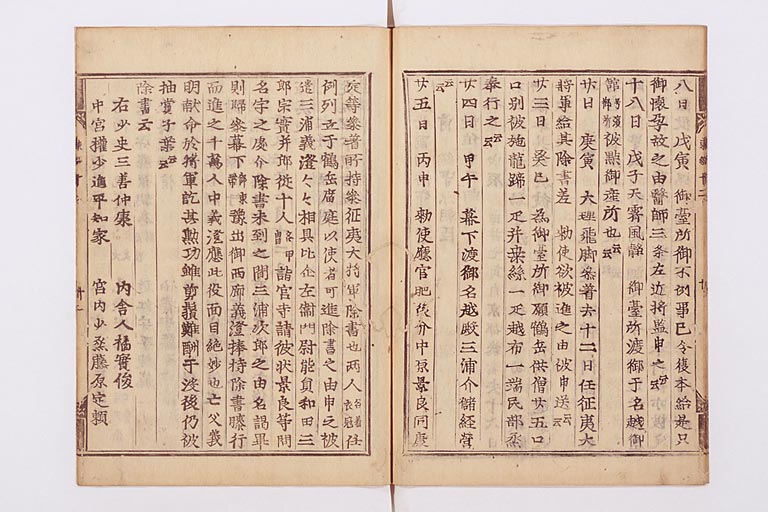 八日 戊寅 御臺所御不例事已令復本給是只
御懷孕故之由醫師三条左近将監申之云云
十八日 戊子天霽風静 御臺所渡御于名越御
館号濱御所被點御産所也云云
廿日 庚寅 大理飛脚参着去十二日任征夷大
将軍給其除書差 勅使欲被進之由被申送云云
廿三日 癸巳 為御臺所御願鶴岳供僧廿五口
口別被施龍蹄一疋并桑絲一疋越布一端民部丞
奉行之云云
廿四日 甲午 幕下渡御名越殿三浦介儲経営
云云
廿五日 丙申 勅使廳官肥後介中原景良同康
定等参着所持参征夷大将軍除書也両人各着衣冠任
例列立于鶴岳廟庭以使者可進除書之由申之被
遣三浦義澄々々相具比企左衛門尉能員和田三
郎宗實并郎従十人各甲冑詣宮寺請彼状景良等問
名字之處介除書未到之間三浦次郎之由名謁畢
則歸参幕下御束帯豫出御西廊義澄捧持除書膝行
而進之千萬人中義澄應此役面目絶妙也亡父義
明献命於将軍訖其勲功雖剪鬚難酬于没後仍被
抽賞子葉云云
除書云
右少史三善仲康 内舎人橘實俊
中宮權少進平知家 宮内少丞藤原定頼